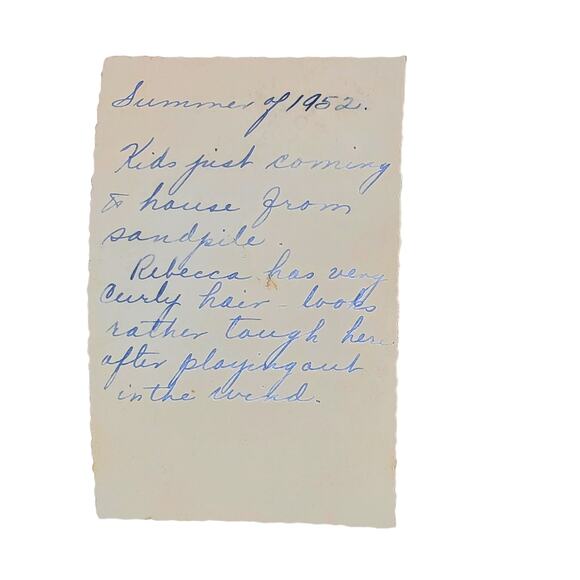 Summer of 1952.
Kids just coming
to house from
sandpile.
Rebecca has very
curly hair - looks
rather tough here
after playing out
in the wind.